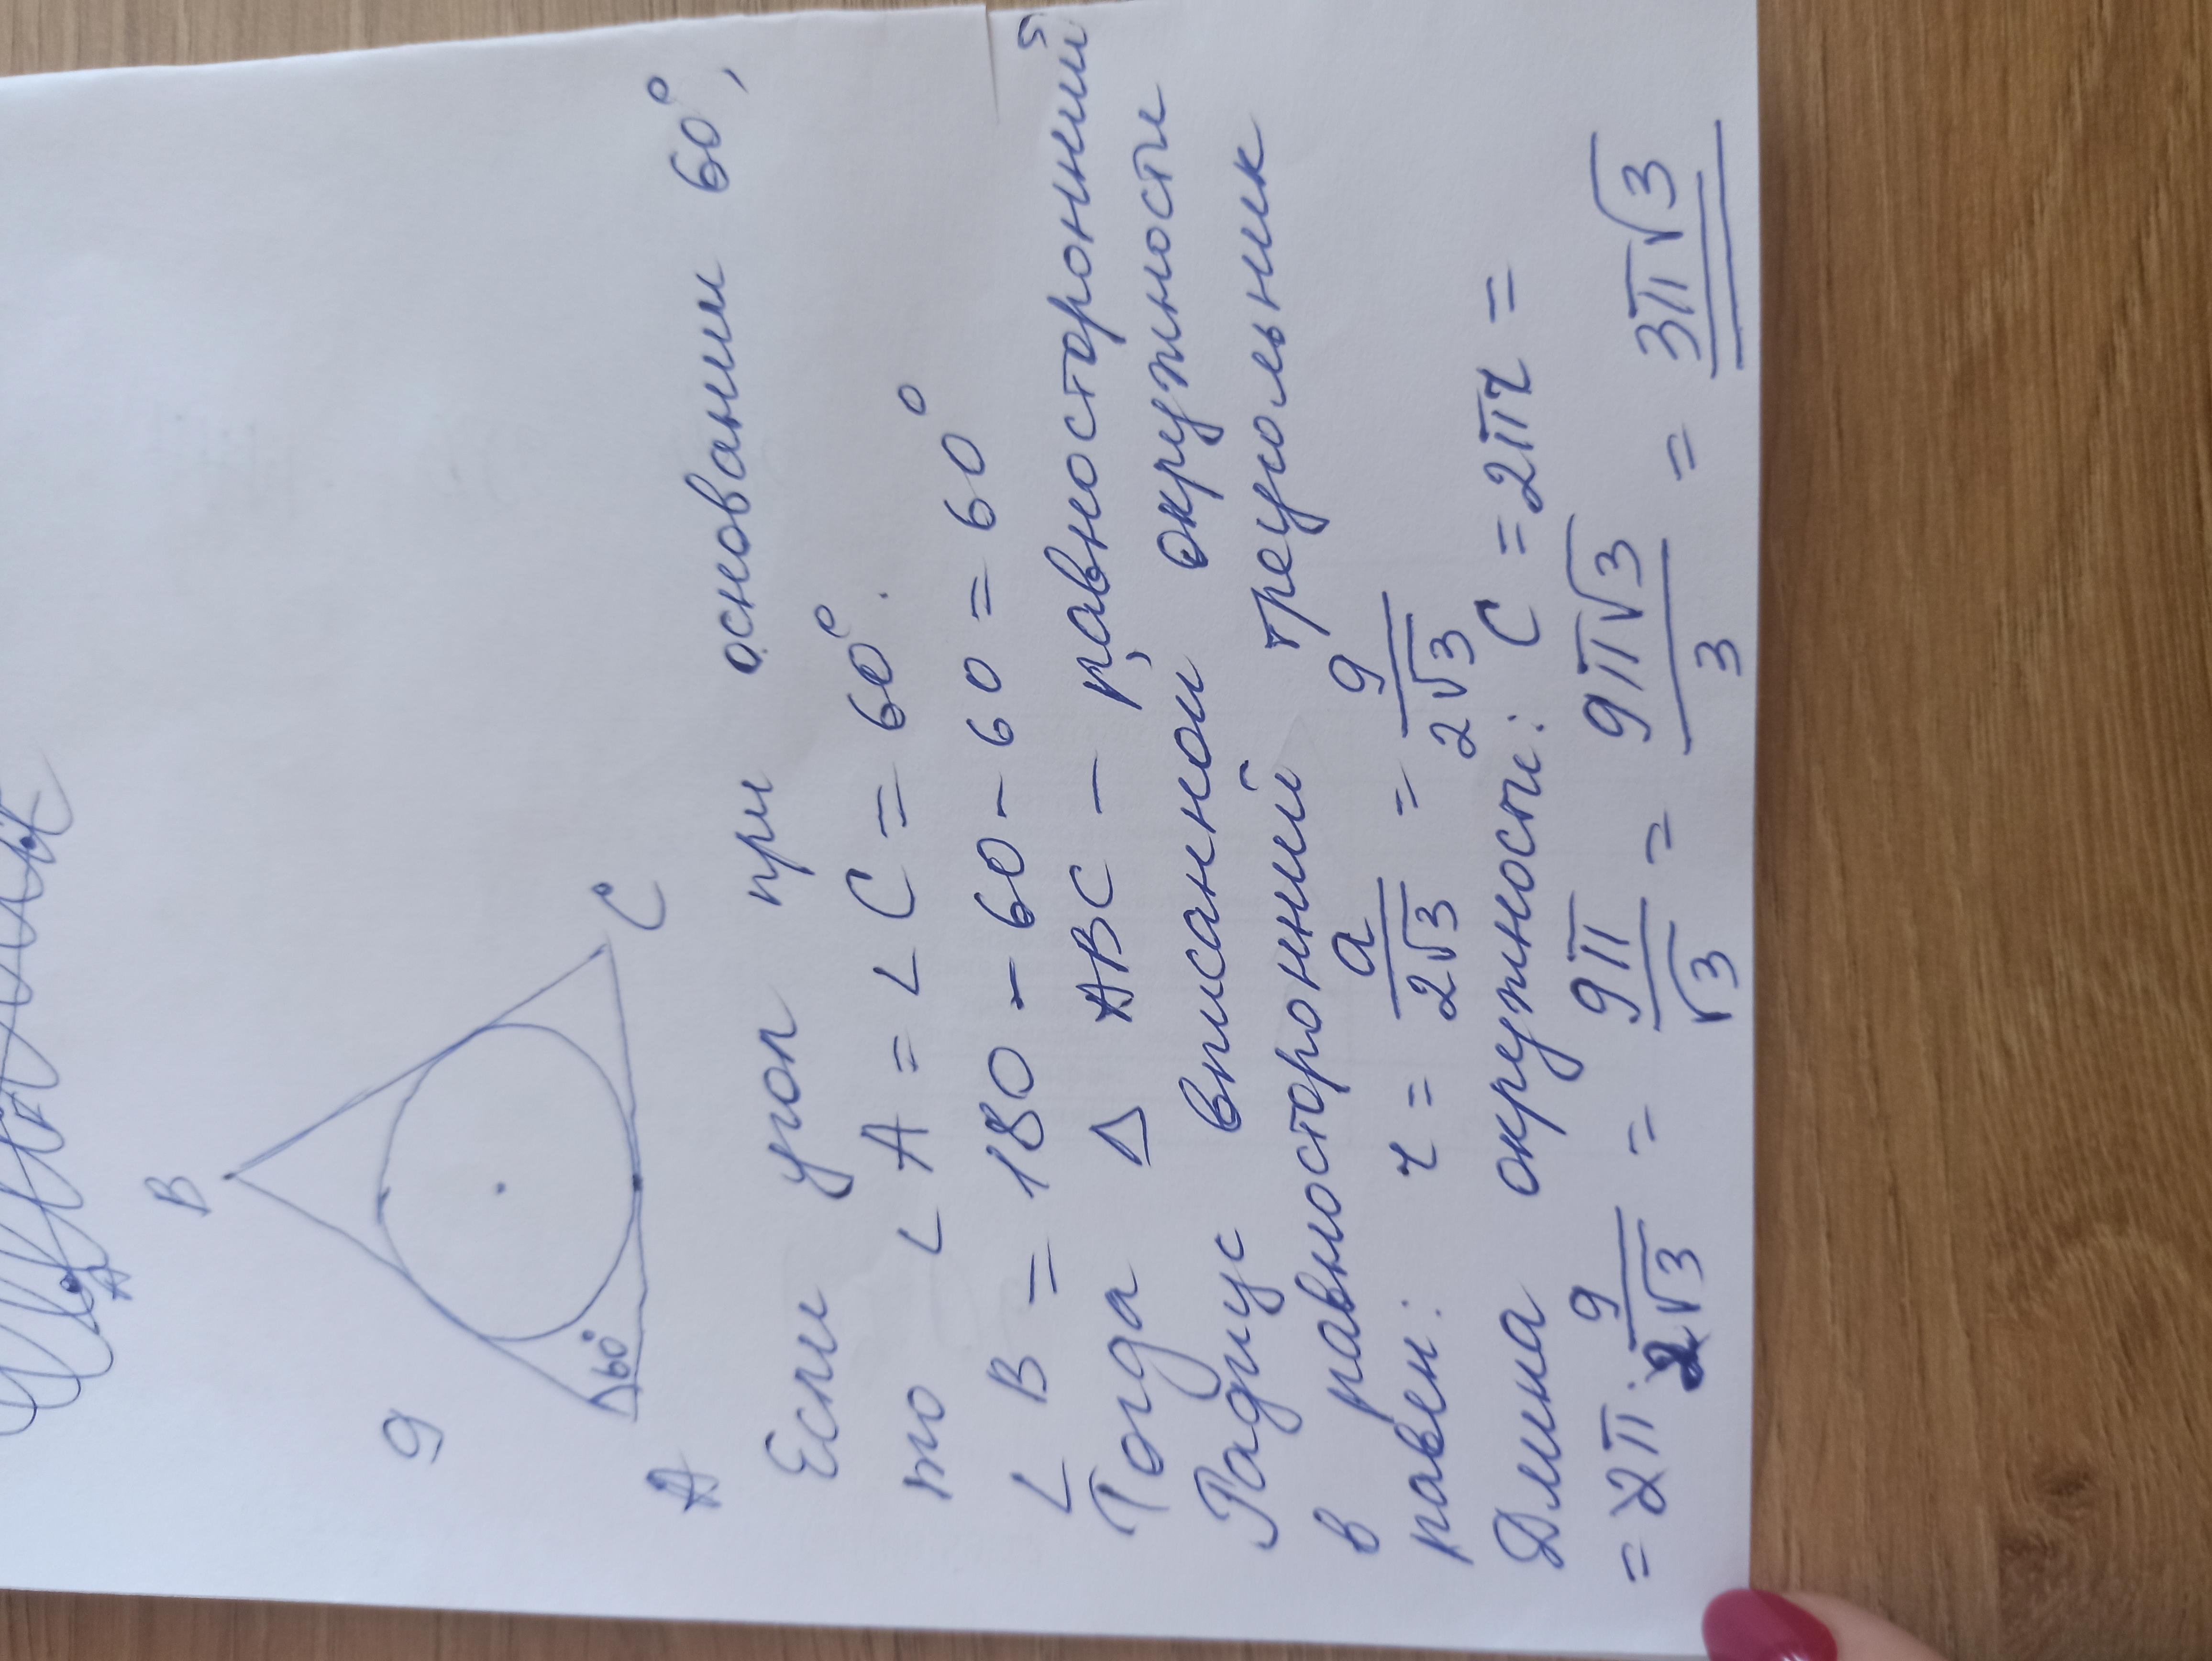 B
9
60°
A
C
Если угол при основании 60°,
то ∟A = ∟C = 60°.
∟B = 180 - 60 - 60 = 60°
Тогда Δ ABC - равносторонний
Радиус вписанной окружности
в равносторонний треугольник
равен: r = a/2√3 = 9/2√3
Длина окружности: C = 2πr =
= 2π · 9/2√3 = 9π/√3 = 9π√3/3 = 3π√3